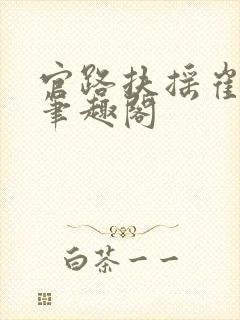 官路扶摇崔
笔趣阁
白茶一一